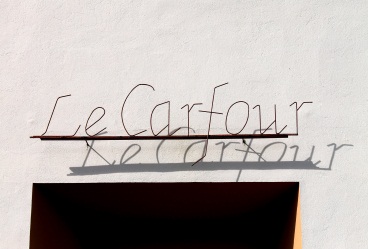 Le Carfour